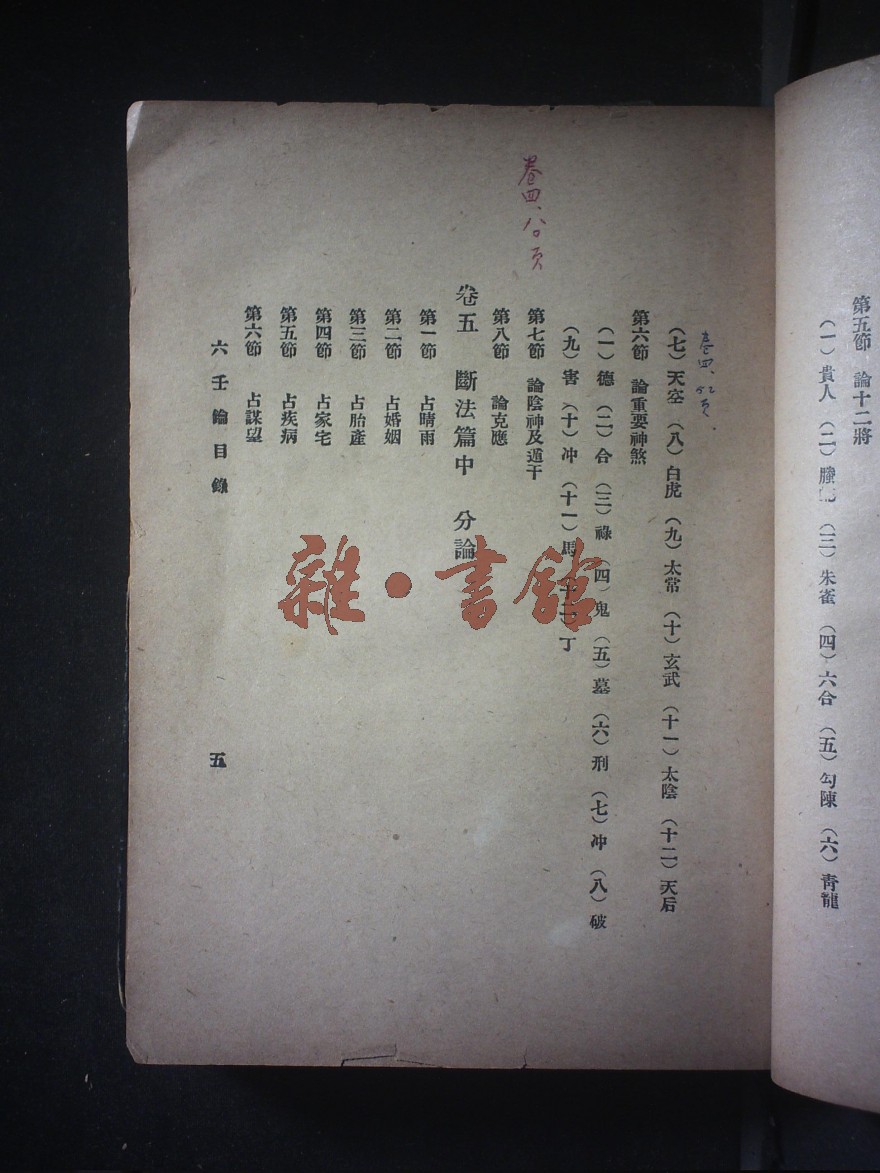 第五節　論十二將
（一）貴人（二）螣蛇（三）朱雀（四）六合（五）勾陳（六）青龍
卷四、
（七）天空（八）白虎（九）太常（十）玄武（十一）太陰（十二）天后
第六節　論重要神煞
（一）德（二）合（三）祿（四）鬼（五）墓（六）刑（七）冲（八）破
（九）害（十）冲（十一）馬（十二）丁
第七節　論陰神及遁干
第八節　論克應
卷四、八〇页
卷五　斷法篇中　分論
第一節　占晴雨
第二節　占婚姻
第三節　占胎產
第四節　占家宅
第五節　占疾病
第六節　占謀望
六壬鑰目錄
五
雜·書館